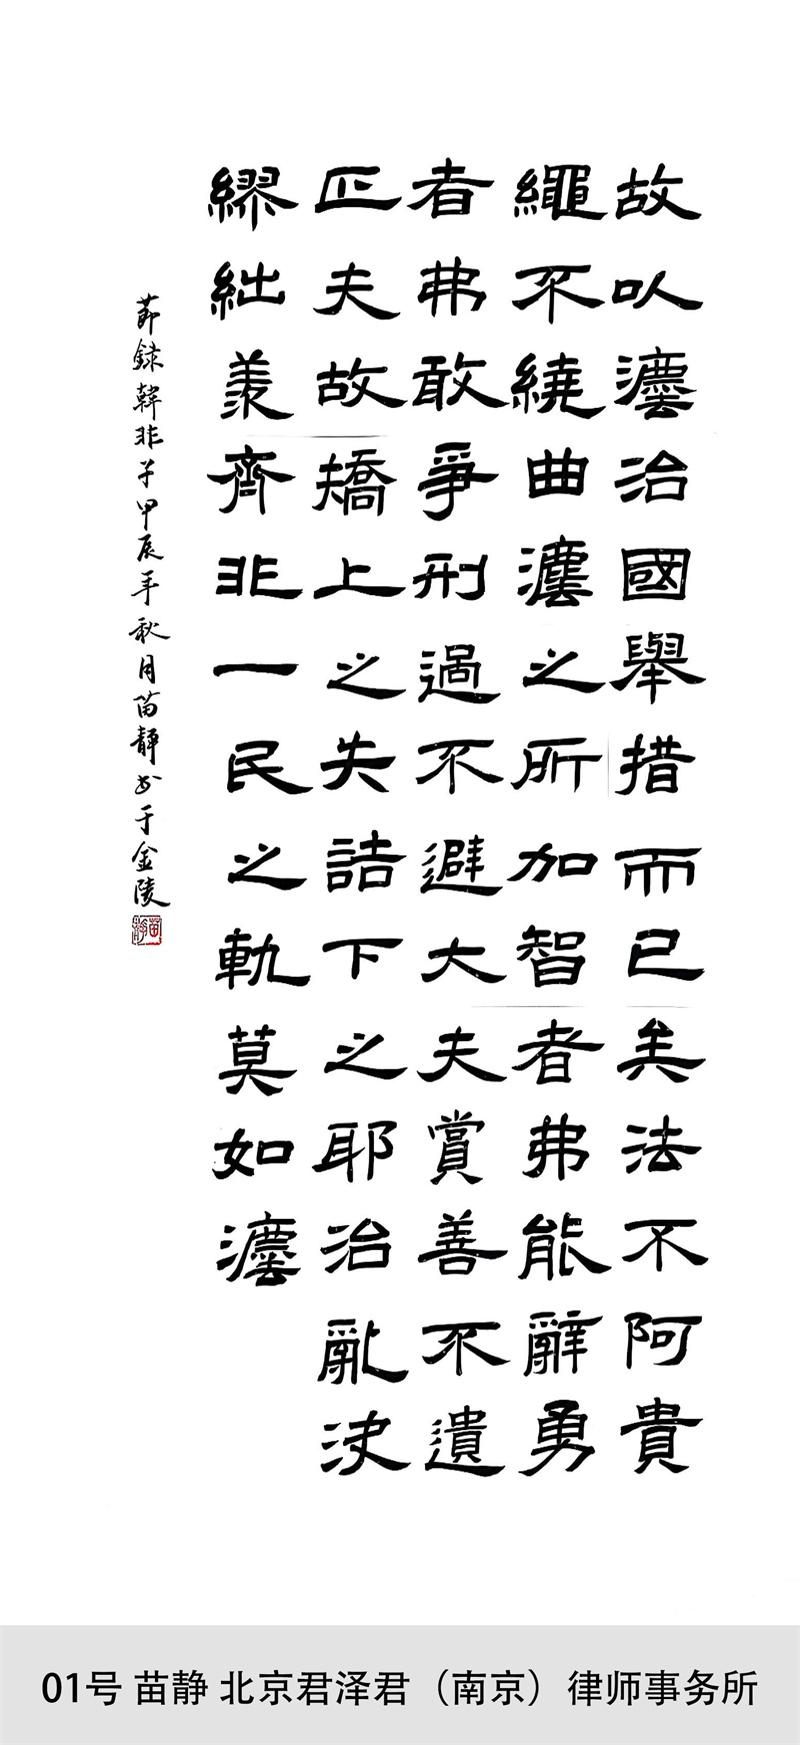 故㕥灋治國舉措而已矣法不阿貴
繩不繞曲灋之所加智者弗能辭勇
者弗敢爭刑過不避大夫賞善不遺
匹夫故矯上之失詰下之耶治亂決
繆絀羨齊非一民之軌莫如灋
莭録韓非子甲辰年秋月苗靜书于金陵
苗靜
01号 苗静 北京君泽君（南京）律师事务所